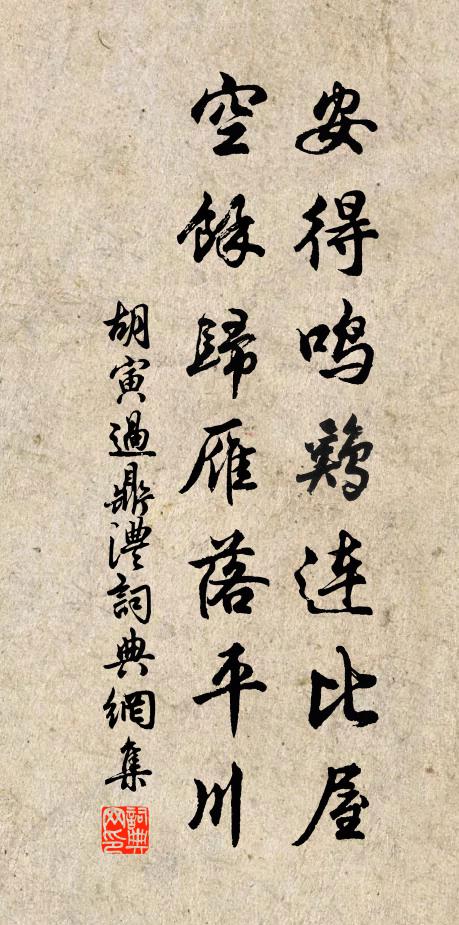 安得鸣鷄連比屋
空餘歸雁落平川
胡寅過鼎澧詞典網集
詞典网印